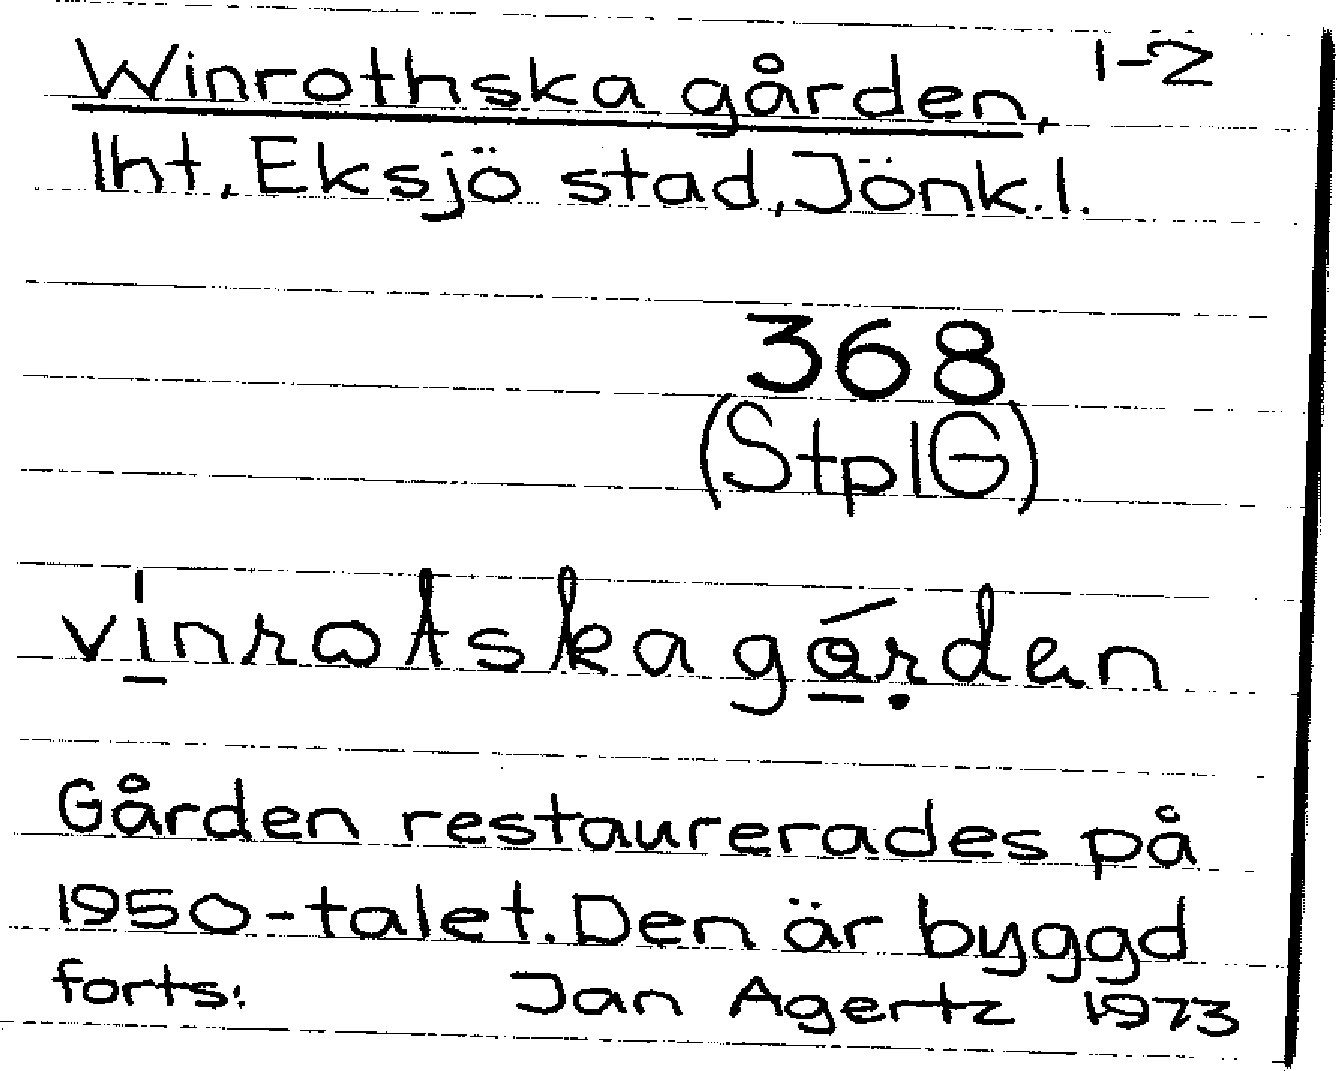 Winrothska gården, 1-2
lht, Eksjö stad, Jönk.l.
368
(StplG)
vinrotskagården
Gården restaurerades på
1950-talet. Den är byggd
forts: Jan Agertz 1973